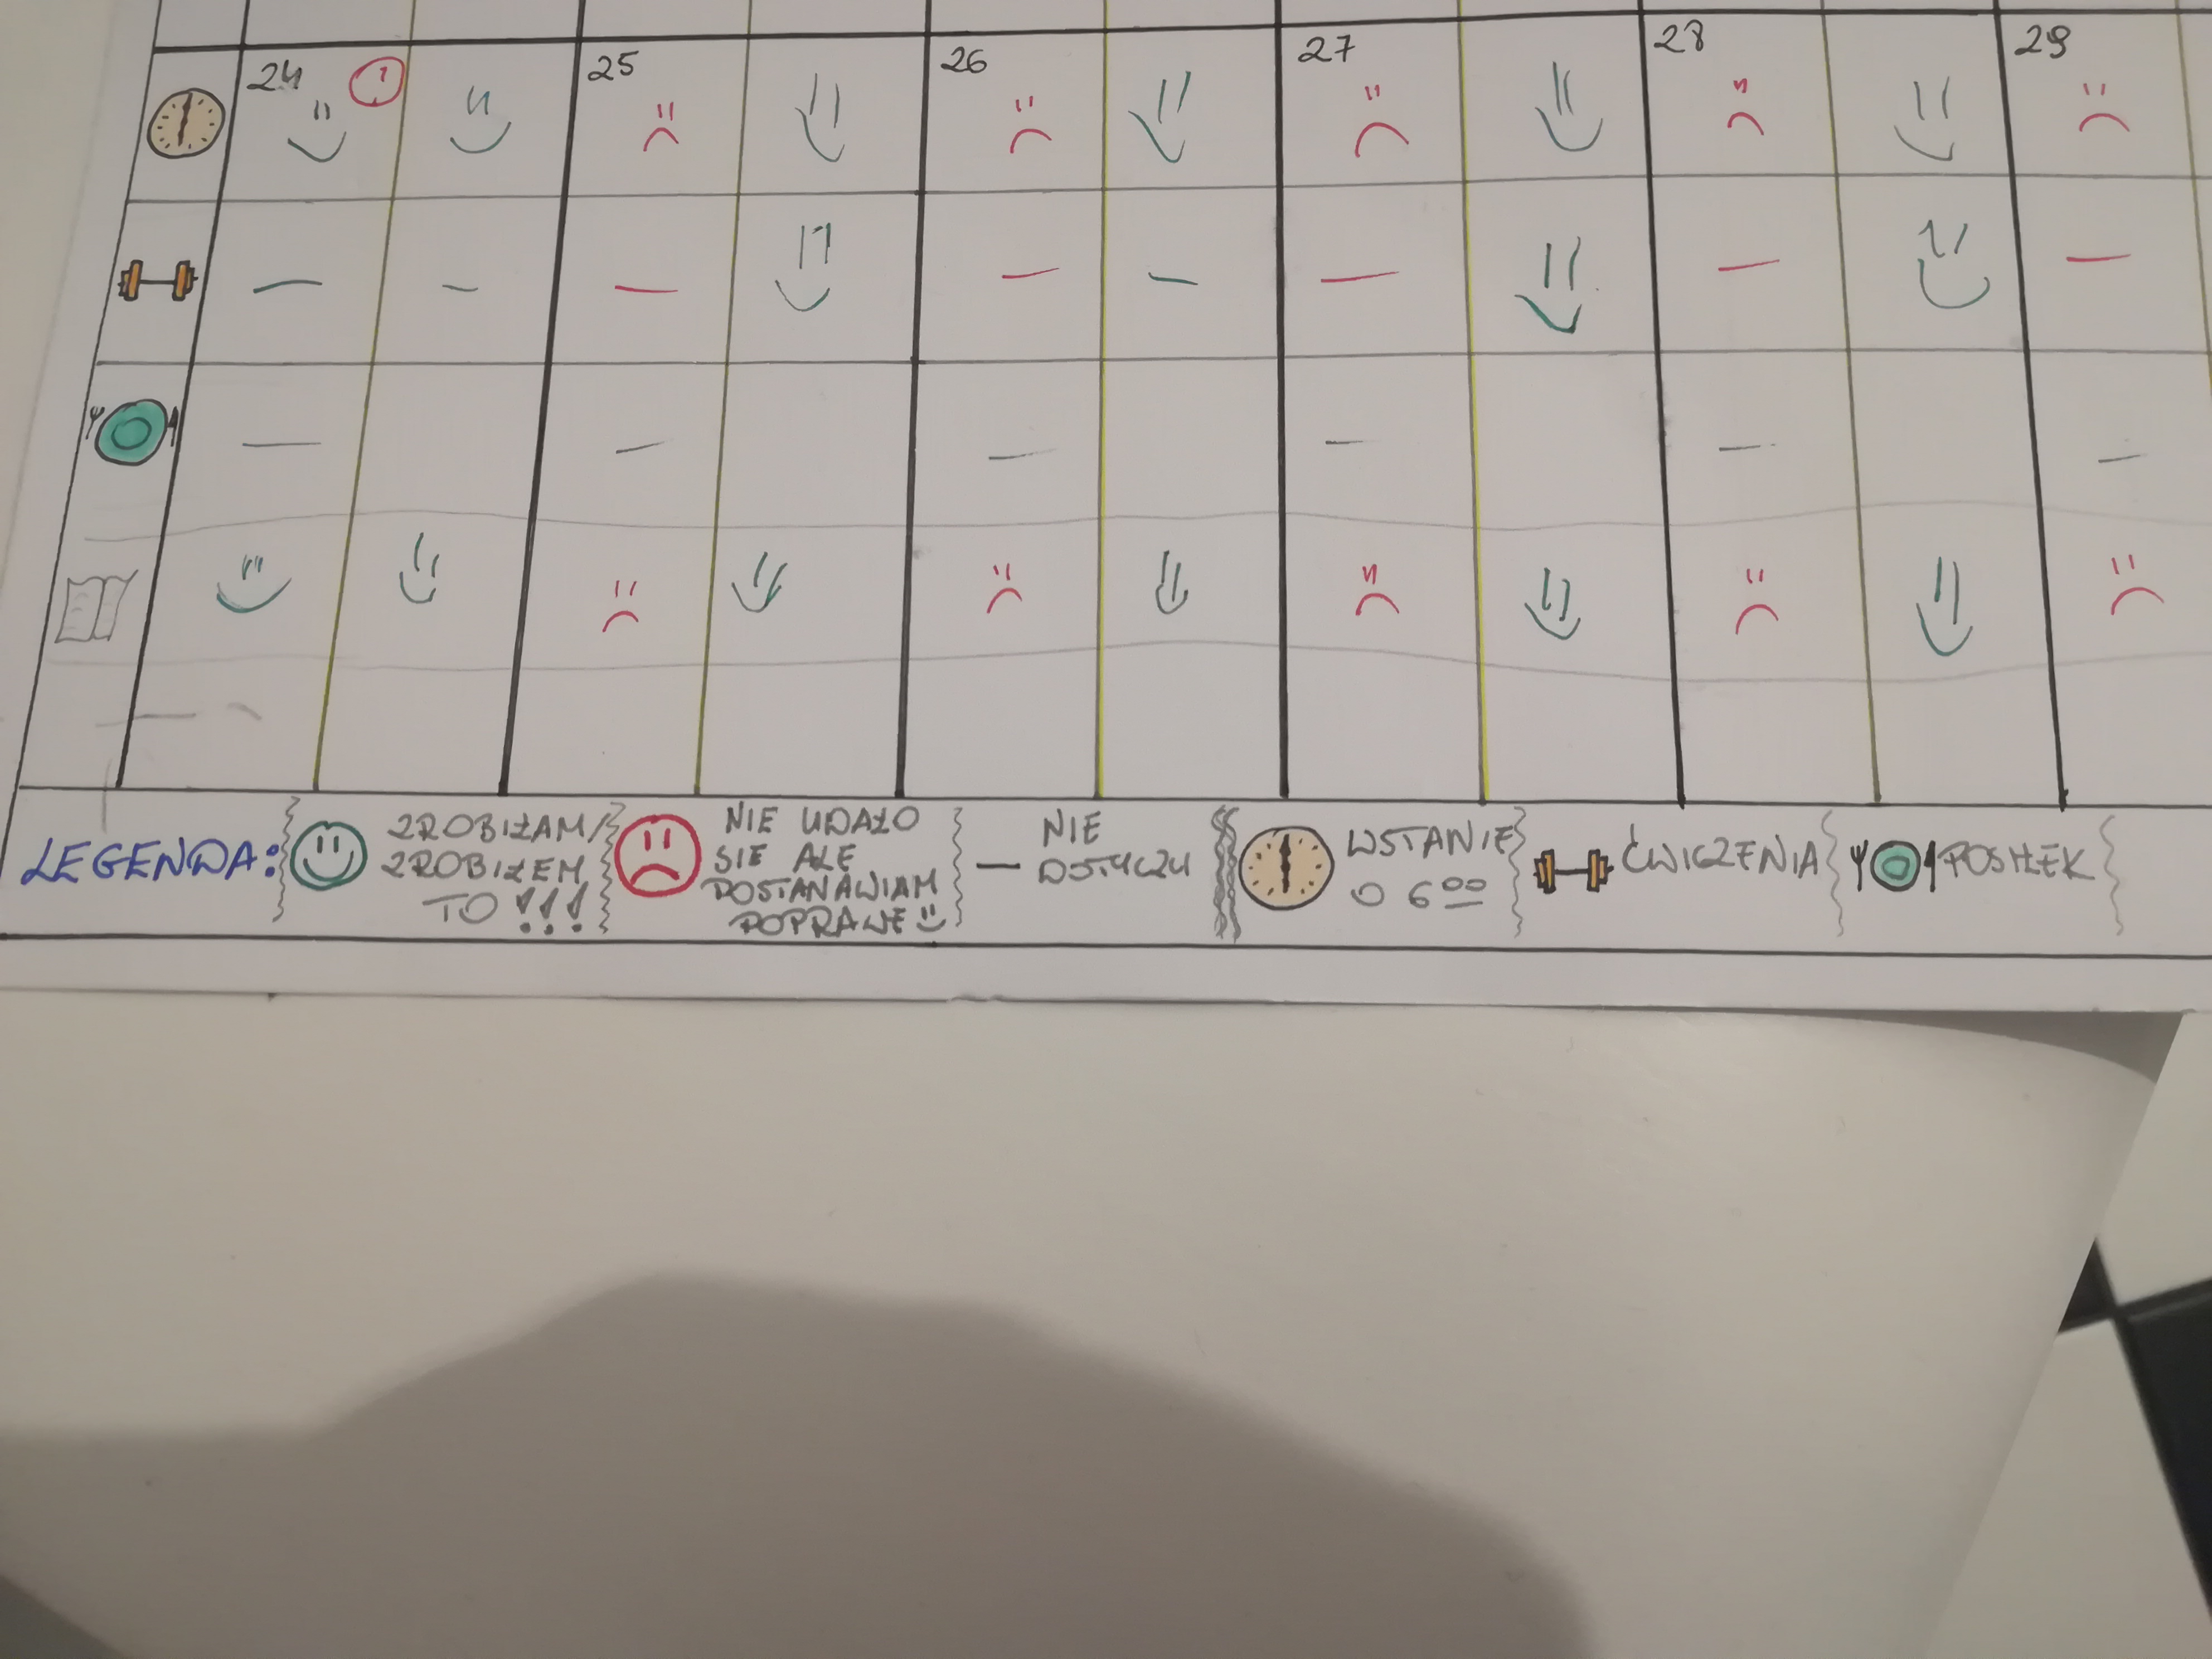 24 1 25 26 27 28 29
LEGENDA:
ZROBIŁAM/
ZROBIŁEM
TO !!!
NIE UDAŁO
SIE ALE
POSTANAWIAM
POPRAWE
NIE
DOTYCZY
WSTANIE
O 6 00
ĆWICZENIA
POSIŁEK